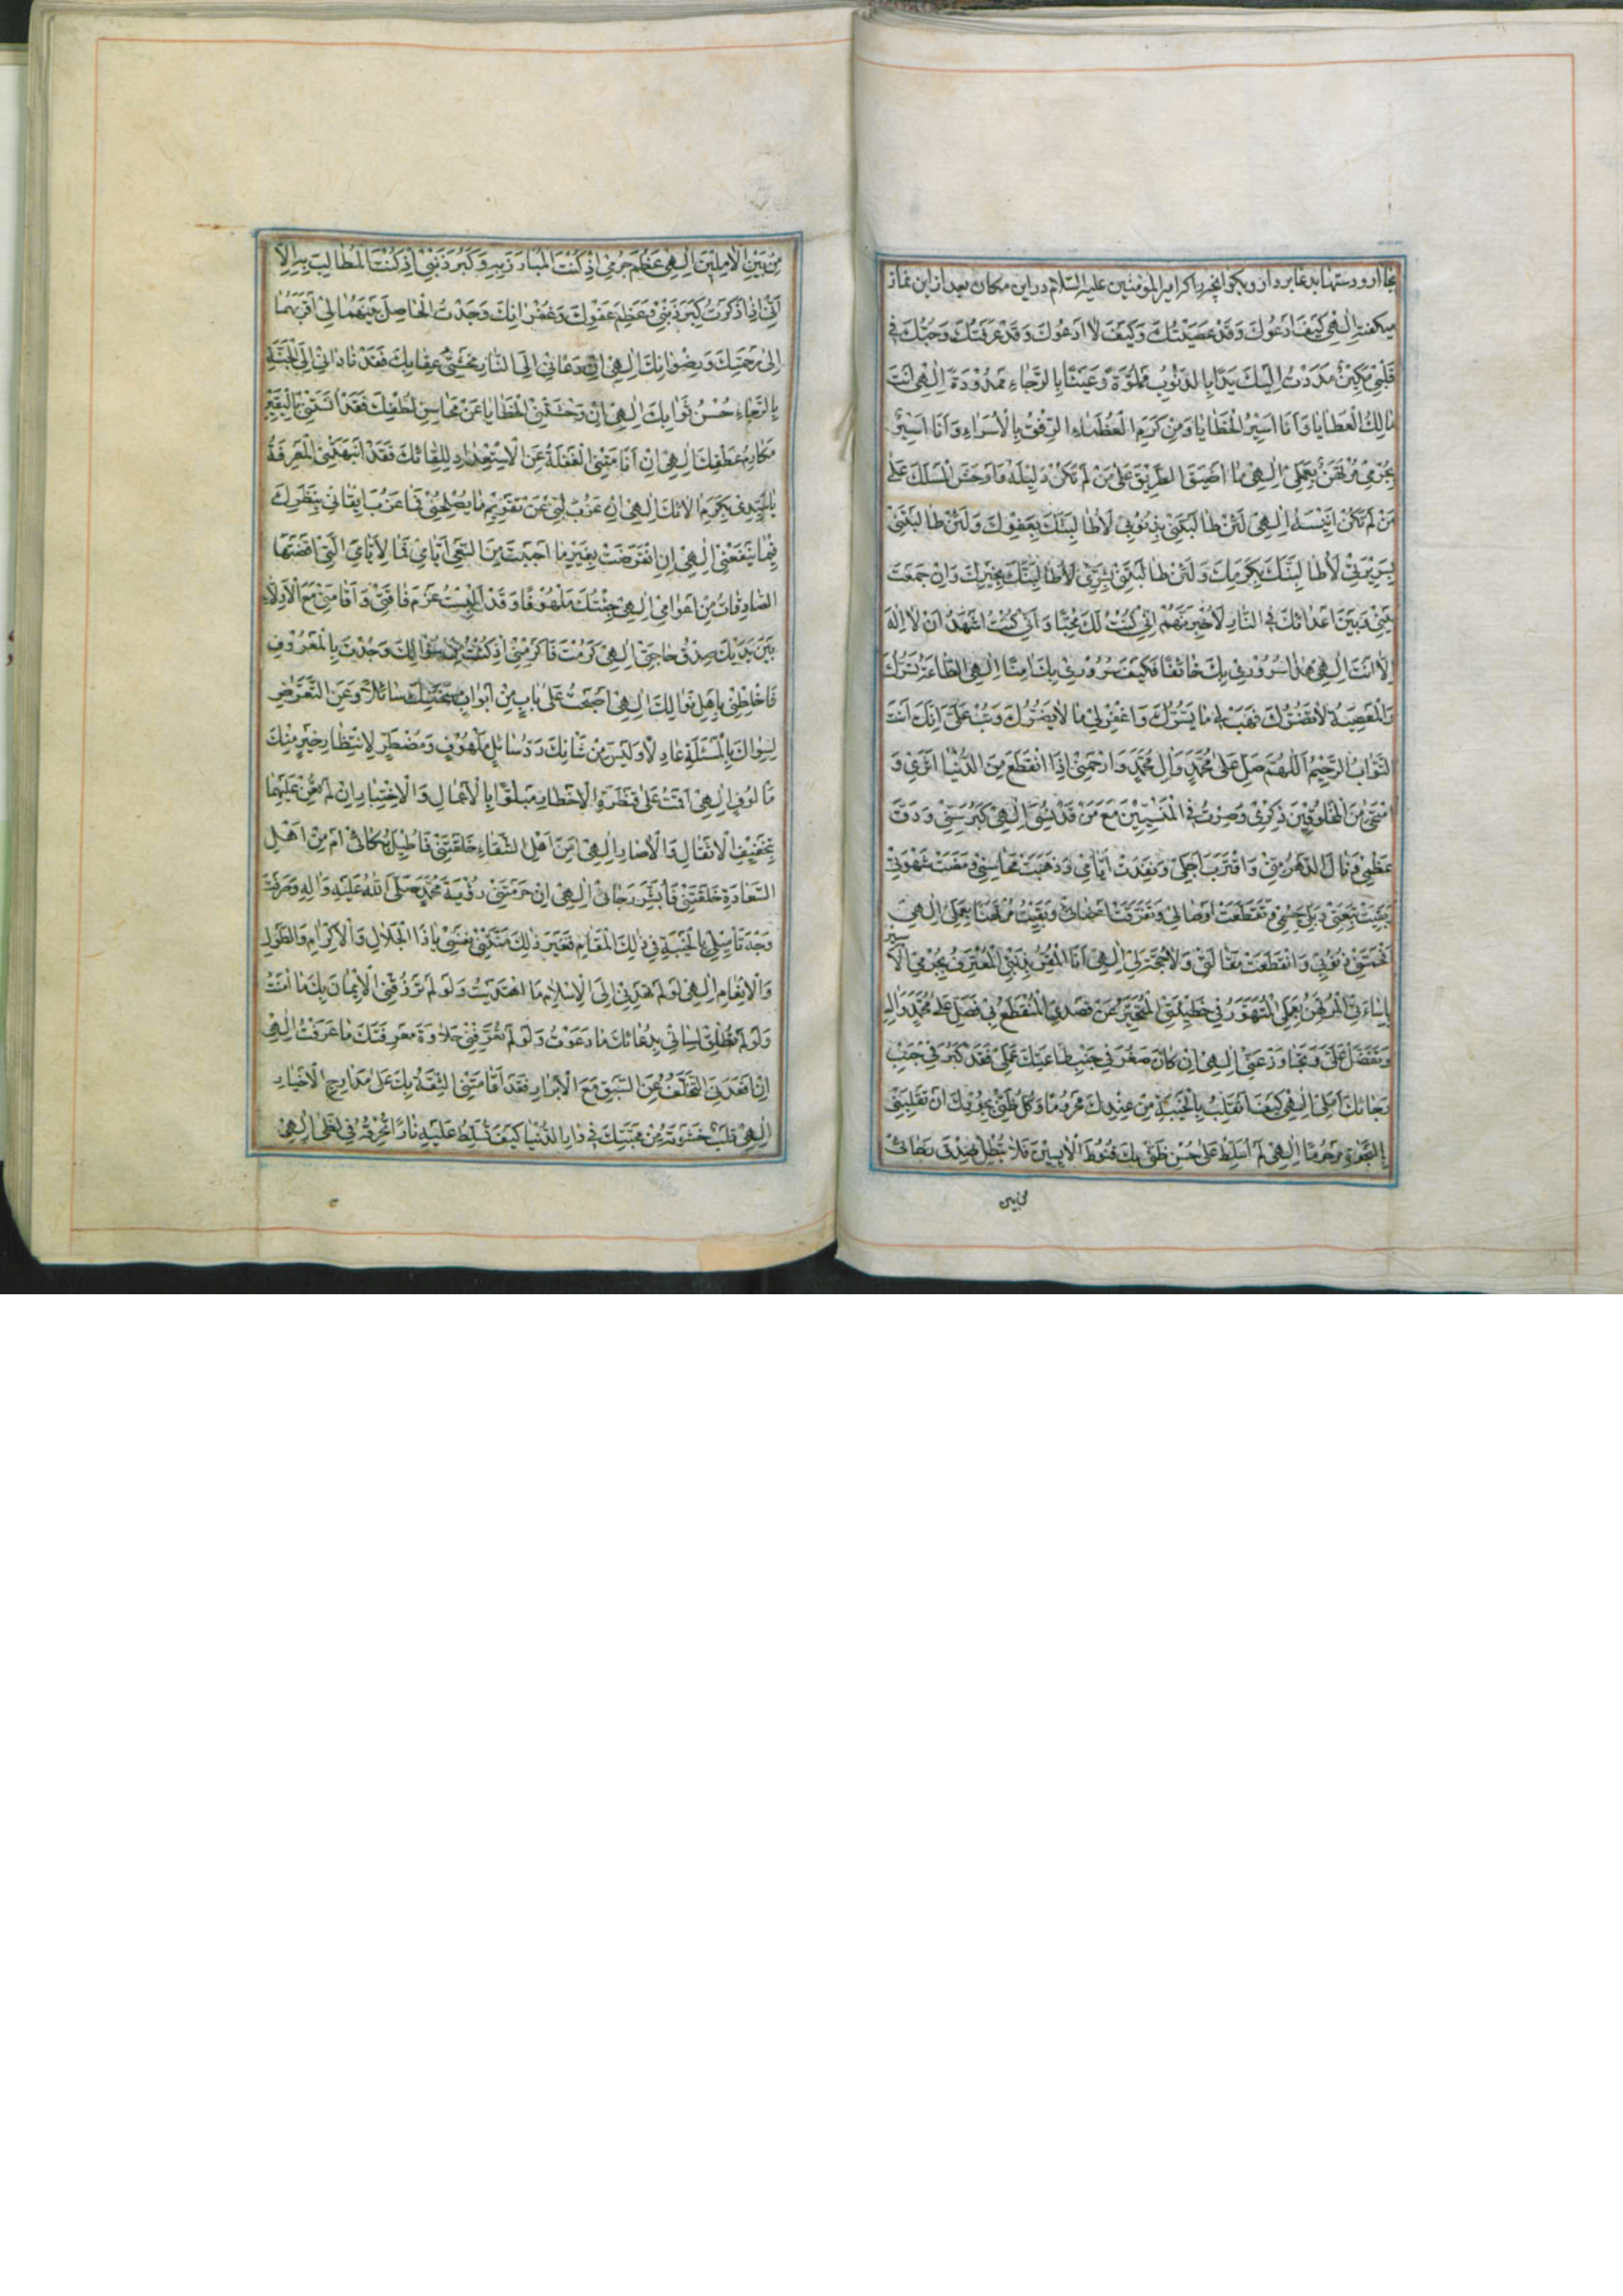 بجا ارد و دستها بدعا بردارد و بگو انچه را كه امیر المؤمنین علیه السّلام در این مكان بعد از این نماز
میكفته اِلٰهی كَیْفَ اَدْعُوكَ وَقَدْ عَصَیْتُكَ وَكَیْفَ لا اَدْعُوكَ وَقَدْ عَرَفْتُكَ وَحُبُّكَ فی
قَلْبی مَكینٌ مَدَدْتُ اِلَیْكَ یَدًا بِالذُّنُوبِ مَمْلُوَّةً وَعَیْنًا بِالرَّجاءِ مَمْدُودَةً اِلٰهی اَنْتَ
مالِكُ الْعَطایا وَاَنَا اَسیرُ الْخَطایا وَمِنْ كَرَمِ الْعُظَماءِ الرِّفْقُ بِالْاُسَراءِ وَاَنَا اَسیرٌ
بِجُرْمی مُرْتَهَنٌ بِعَمَلی اِلٰهی ما اَضْیَقَ الطَّریقَ عَلٰی مَنْ لَمْ تَكُنْ دَلیلَهُ وَاَوْحَشَ الْمَسْلَكَ عَلٰی
مَنْ لَمْ تَكُنْ اَنیسَهُ اِلٰهی لَئِنْ طالَبْتَنی بِذُنُوبی لَاُطالِبَنَّكَ بِعَفْوِكَ وَلَئِنْ طالَبْتَنی
بِسَریرَتی لَاُطالِبَنَّكَ بِكَرَمِكَ وَلَئِنْ طالَبْتَنی بِشَرّی لَاُطالِبَنَّكَ بِخَیْرِكَ وَاِنْ جَمَعْتَ
بَیْنی وَبَیْنَ اَعْدائِكَ فِی النّارِ لَاُخْبِرَنَّهُمْ اَنّی كُنْتُ لَكَ مُحِبًّا وَاَنّی كُنْتُ اَشْهَدُ اَنْ لا اِلٰهَ
اِلّا اَنْتَ اِلٰهی هٰذا سُرُوری بِكَ خائِفًا فَكَیْفَ سُرُوری بِكَ اٰمِنًا اِلٰهی الطّاعَةُ تَسُرُّكَ
وَالْمَعْصِیَةُ لا تَضُرُّكَ فَهَبْ لی ما یَسُرُّكَ وَاغْفِرْ لی ما لا یَضُرُّكَ وَتُبْ عَلَیَّ اِنَّكَ اَنْتَ
التَّوّابُ الرَّحیمُ اَللّٰهُمَّ صَلِّ عَلٰی مُحَمَّدٍ وَاٰلِ مُحَمَّدٍ وَارْحَمْنی اِذَا انْقَطَعَ مِنَ الدُّنْیا اَثَری وَ
امْتَحٰی مِنَ الْمَخْلُوقینَ ذِكْری وَصِرْتُ فِی الْمَنْسِیّینَ مَعَ مَنْ قَدْ نُسِیَ اِلٰهی كَبُرَ سِنّی وَدَقَّ
عَظْمی وَنالَ الدَّهْرُ مِنّی وَاقْتَرَبَ اَجَلی وَنَفِدَتْ اَیّامی وَذَهَبَتْ مَحاسِنی وَمَضَتْ شَهْوَتی
وَبَقِیَتْ تَبِعَتی وَبَلِیَ جِسْمی وَتَقَطَّعَتْ اَوْصالی وَتَفَرَّقَتْ اَعْضائی وَبَقیتُ مُرْتَهَنًا بِعَمَلی اِلٰهی
اَفْحَمَتْنی ذُنُوبی وَانْقَطَعَتْ مَقالَتی وَلا حُجَّةَ لی اِلٰهی اَنَا الْمُقِرُّ بِذَنْبی الْمُعْتَرِفُ بِجُرْمی الْاَسیر
بِاِساءَتی الْمُرْتَهَنُ بِعَمَلی الْمُتَهَوِّرُ فی خَطیئَتی الْمُتَحَیِّرُ عَنْ قَصْدی الْمُنْقَطَعُ بی فَصَلِّ عَلٰی مُحَمَّدٍ وَاٰلِهِ
وَتَفَضَّلْ عَلَیَّ وَتَجاوَزْ عَنّی اِلٰهی اِنْ كانَ صَغُرَ فی جَنْبِ طاعَتِكَ عَمَلی فَقَدْ كَبُرَ فی جَنْبِ
رَجائِكَ اَمَلی اِلٰهی كَیْفَ اَنْقَلِبُ بِالْخَیْبَةِ مِنْ عِنْدِكَ مَحْرُومًا وَكُلُّ ظَنّی بِجُودِكَ اَنْ تَقْلِبَنی
بِالنَّجاةِ مَرْحُومًا اِلٰهی لَمْ اُسَلِّطْ عَلٰی حُسْنِ ظَنّی بِكَ قُنُوطَ الْاٰیِسینَ فَلا تُبْطِلْ صِدْقَ رَجائی
من بین
مِنْ بَیْنِ الْاٰمِلینَ اِلٰهی عَظُمَ جُرْمی اِذْ كُنْتَ الْمُبارَزَ بِهِ وَكَبُرَ ذَنْبی اِذْ كُنْتَ الْمُطالِبَ بِهِ اِلّا
اَنّی اِذا ذَكَرْتُ كَبیرَ ذَنْبی وَعَظیمَ عَفْوِكَ وَغُفْرانِكَ وَجَدْتُ الْحاصِلَ بَیْنَهُما لی اَقْرَبَهُما
اِلٰی رَحْمَتِكَ وَرِضْوانِكَ اِلٰهی اِنْ دَعانی اِلَی النّارِ مَخْشِیُّ عِقابِكَ فَقَدْ نادانی اِلَی الْجَنَّةِ
بِالرَّجاءِ حُسْنُ ثَوابِكَ اِلٰهی اِنْ وَحَشَتْنی الْخَطایا عَنْ مَحاسِنِ لُطْفِكَ فَقَدْ اٰنَسَتْنی بِالْیَقینِ
مَكارِمُ عَطْفِكَ اِلٰهی اِنْ اَنامَتْنی الْغَفْلَةُ عَنِ الْاِسْتِعْدادِ لِلِقائِكَ فَقَدْ اَنْبَهَتْنی الْمَعْرِفَةُ
یا سَیِّدی بِكَرَمِ اٰلائِكَ اِلٰهی اِنْ عَزُبَ لُبّی عَنْ تَقْویمِ ما یُصْلِحُنی فَما عَزُبَ ایقانی بِنَظَرِكَ لی
فیما یَنْفَعُنی اِلٰهی اِنِ انْقَرَضَتْ بِغَیْرِ ما اَحْبَبْتَ مِنَ السَّعْیِ اَیّامی فَبِالْاَیّامِ الَّتی اَمْضَتْها
الصّادِقاتُ مِنْ اَعْوامی اِلٰهی جِئْتُكَ مَلْهُوفًا وَقَدْ اُلْبِسْتُ عَدَمَ فاقَتی وَاَقامَنی مَعَ الْاَذِلّاءِ
بَیْنَ یَدَیْكَ صِدْقُ حاجَتی اِلٰهی كَرُمْتَ فَاَكْرِمْنی اِذْ كُنْتُ مِنْ سُؤّالِكَ وَجُدْتَ بِالْمَعْرُوفِ
فَاخْلِطْنی بِاَهْلِ نَوالِكَ اِلٰهی اَصْبَحْتُ عَلٰی بابٍ مِنْ اَبْوابِ مِنَحِكَ سائِلاً وَعَنِ التَّعَرُّضِ
لِسِواكَ بِالْمَسْئَلَةِ عادِلاً وَلَیْسَ مِنْ شَأنِكَ رَدُّ سائِلٍ مَلْهُوفٍ وَمُضْطَرٍّ لِانْتِظارِ خَیْرٍ مِنْكَ
مَأْلُوفٍ اِلٰهی اَقَمْتُ عَلٰی قَنْطَرَةِ الْاَخْطارِ مَبْلُوًّا بِالْاَعْمالِ وَالْاِخْتِبارِ اِنْ لَمْ تُعِنْ عَلَیْهِما
بِتَخْفیفِ الْاَثْقالِ وَالْاٰصارِ اِلٰهی اَمِنْ اَهْلِ الشَّقاءِ خَلَقْتَنی فَاُطیلَ بُكائی اَمْ مِنْ اَهْلِ
السَّعادَةِ خَلَقْتَنی فَاُبَشِّرَ رَجائی اِلٰهی اِنْ حَرَمْتَنی رُؤْیَةَ مُحَمَّدٍ صَلَّی اللّٰهُ عَلَیْهِ وَاٰلِهِ وَصَرَفْتَ
وَجْهَ تَأْمیلی بِالْخَیْبَةِ فی ذٰلِكَ الْمَقامِ فَغَیْرَ ذٰلِكَ مَنَّتْنی نَفْسی یا ذَا الْجَلالِ وَالْاِكْرامِ وَالطَّوْلِ
وَالْاِنْعامِ اِلٰهی لَوْ لَمْ تَهْدِنی اِلَی الْاِسْلامِ مَا اهْتَدَیْتُ وَلَوْ لَمْ تَرْزُقْنی الْاِیمانَ بِكَ ما اٰمَنْتُ
وَلَوْ لَمْ تُطْلِقْ لِسانی بِدُعائِكَ ما دَعَوْتُ وَلَوْ لَمْ تُعَرِّفْنی حَلاوَةَ مَعْرِفَتِكَ ما عَرَفْتُ اِلٰهی
اِنْ اَقْعَدَنی التَّخَلُّفُ عَنِ السَّبْقِ مَعَ الْاَبْرارِ فَقَدْ اَقامَتْنی الثِّقَةُ بِكَ عَلٰی مَدارِجِ الْاَخْیارِ
اِلٰهی قَلْبٌ حَشَوْتَهُ مِنْ مَحَبَّتِكَ فی دارِ الدُّنْیا كَیْفَ تُسَلِّطُ عَلَیْهِ نارًا تُحْرِقُهُ فی لَظٰی اِلٰهی